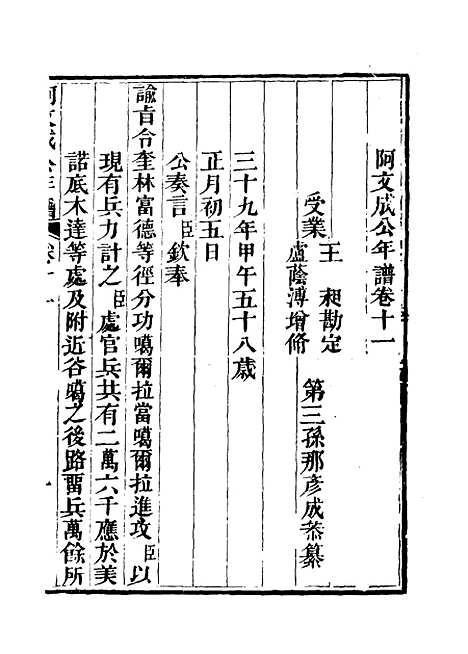 阿文成公年譜卷十一
第三孫那彥成恭纂
受業王昶勘定
盧蔭溥增修
三十九年甲午五十八歲
正月初五日
公奏言臣欽奉
諭旨令奎林富德等徑分功噶爾拉當噶爾拉進攻臣以
現有兵力計之臣處官兵共有二萬六千應於美
諾底木達等處及附近谷噶之後路留兵萬餘所
阿文成公年譜 卷十一 一